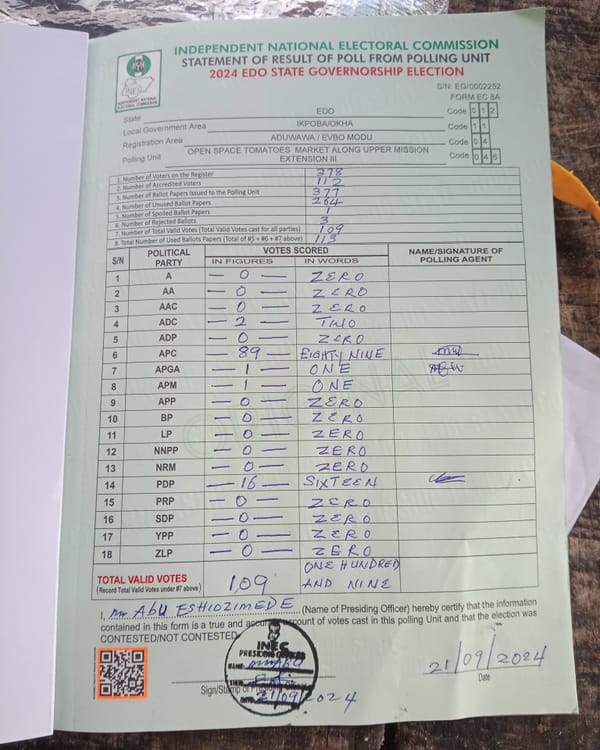 INDEPENDENT NATIONAL ELECTORAL COMMISSION
STATEMENT OF RESULT OF POLL FROM POLLING UNIT
2024 EDO STATE GOVERNORSHIP ELECTION
INEC
INDEPENDENT NATIONAL
ELECTORAL COMMISSION
S/N: EG/0002252
FORM EC 8A
State EDO Code 0 1 2
Local Government Area IKPOBA/OKHA Code 1 1
Registration Area ADUWAWA / EVBO MODU Code 0 4
Polling Unit OPEN SPACE TOMATOES MARKET ALONG UPPER MISSION EXTENSION III Code 0 4 6
1. Number of Voters on the Register 378
2. Number of Accredited Voters 112
3. Number of Ballot Papers Issued to the Polling Unit 377
4. Number of Unused Ballot Papers 264
5. Number of Spoiled Ballot Papers 1
6. Number of Rejected Ballots 3
7. Number of Total Valid Votes (Total Valid Votes cast for all parties) 109
8. Total Number of Used Ballots Papers (Total of #5 + #6 + #7 above) 113
S/N POLITICAL PARTY VOTES SCORED NAME/SIGNATURE OF POLLING AGENT
IN FIGURES IN WORDS
1 A — 0 — ZERO
2 AA — 0 — ZERO
3 AAC — 0 — ZERO
4 ADC — 2 — TWO
5 ADP — 0 — ZERO
6 APC — 89 — EIGHTY NINE
7 APGA — 1 — ONE
8 APM — 1 — ONE
9 APP — 0 — ZERO
10 BP — 0 — ZERO
11 LP — 0 — ZERO
12 NNPP — 0 — ZERO
13 NRM — 0 — ZERO
14 PDP — 16 — SIXTEEN
15 PRP — 0 — ZERO
16 SDP — 0 — ZERO
17 YPP — 0 — ZERO
18 ZLP — 0 — ZERO
TOTAL VALID VOTES 109 ONE HUNDRED AND NINE
(Record Total Valid Votes under #7 above)
I, Mr ABU ESHIOZIMEDE (Name of Presiding Officer) hereby certify that the information
contained in this form is a true and accurate account of votes cast in this polling Unit and that the election was
CONTESTED/NOT CONTESTED.
INEC
PRESIDING OFFICER
NAME:
DATE: 21/09/2024
Sign/Stamp of
21/09/2024
Date